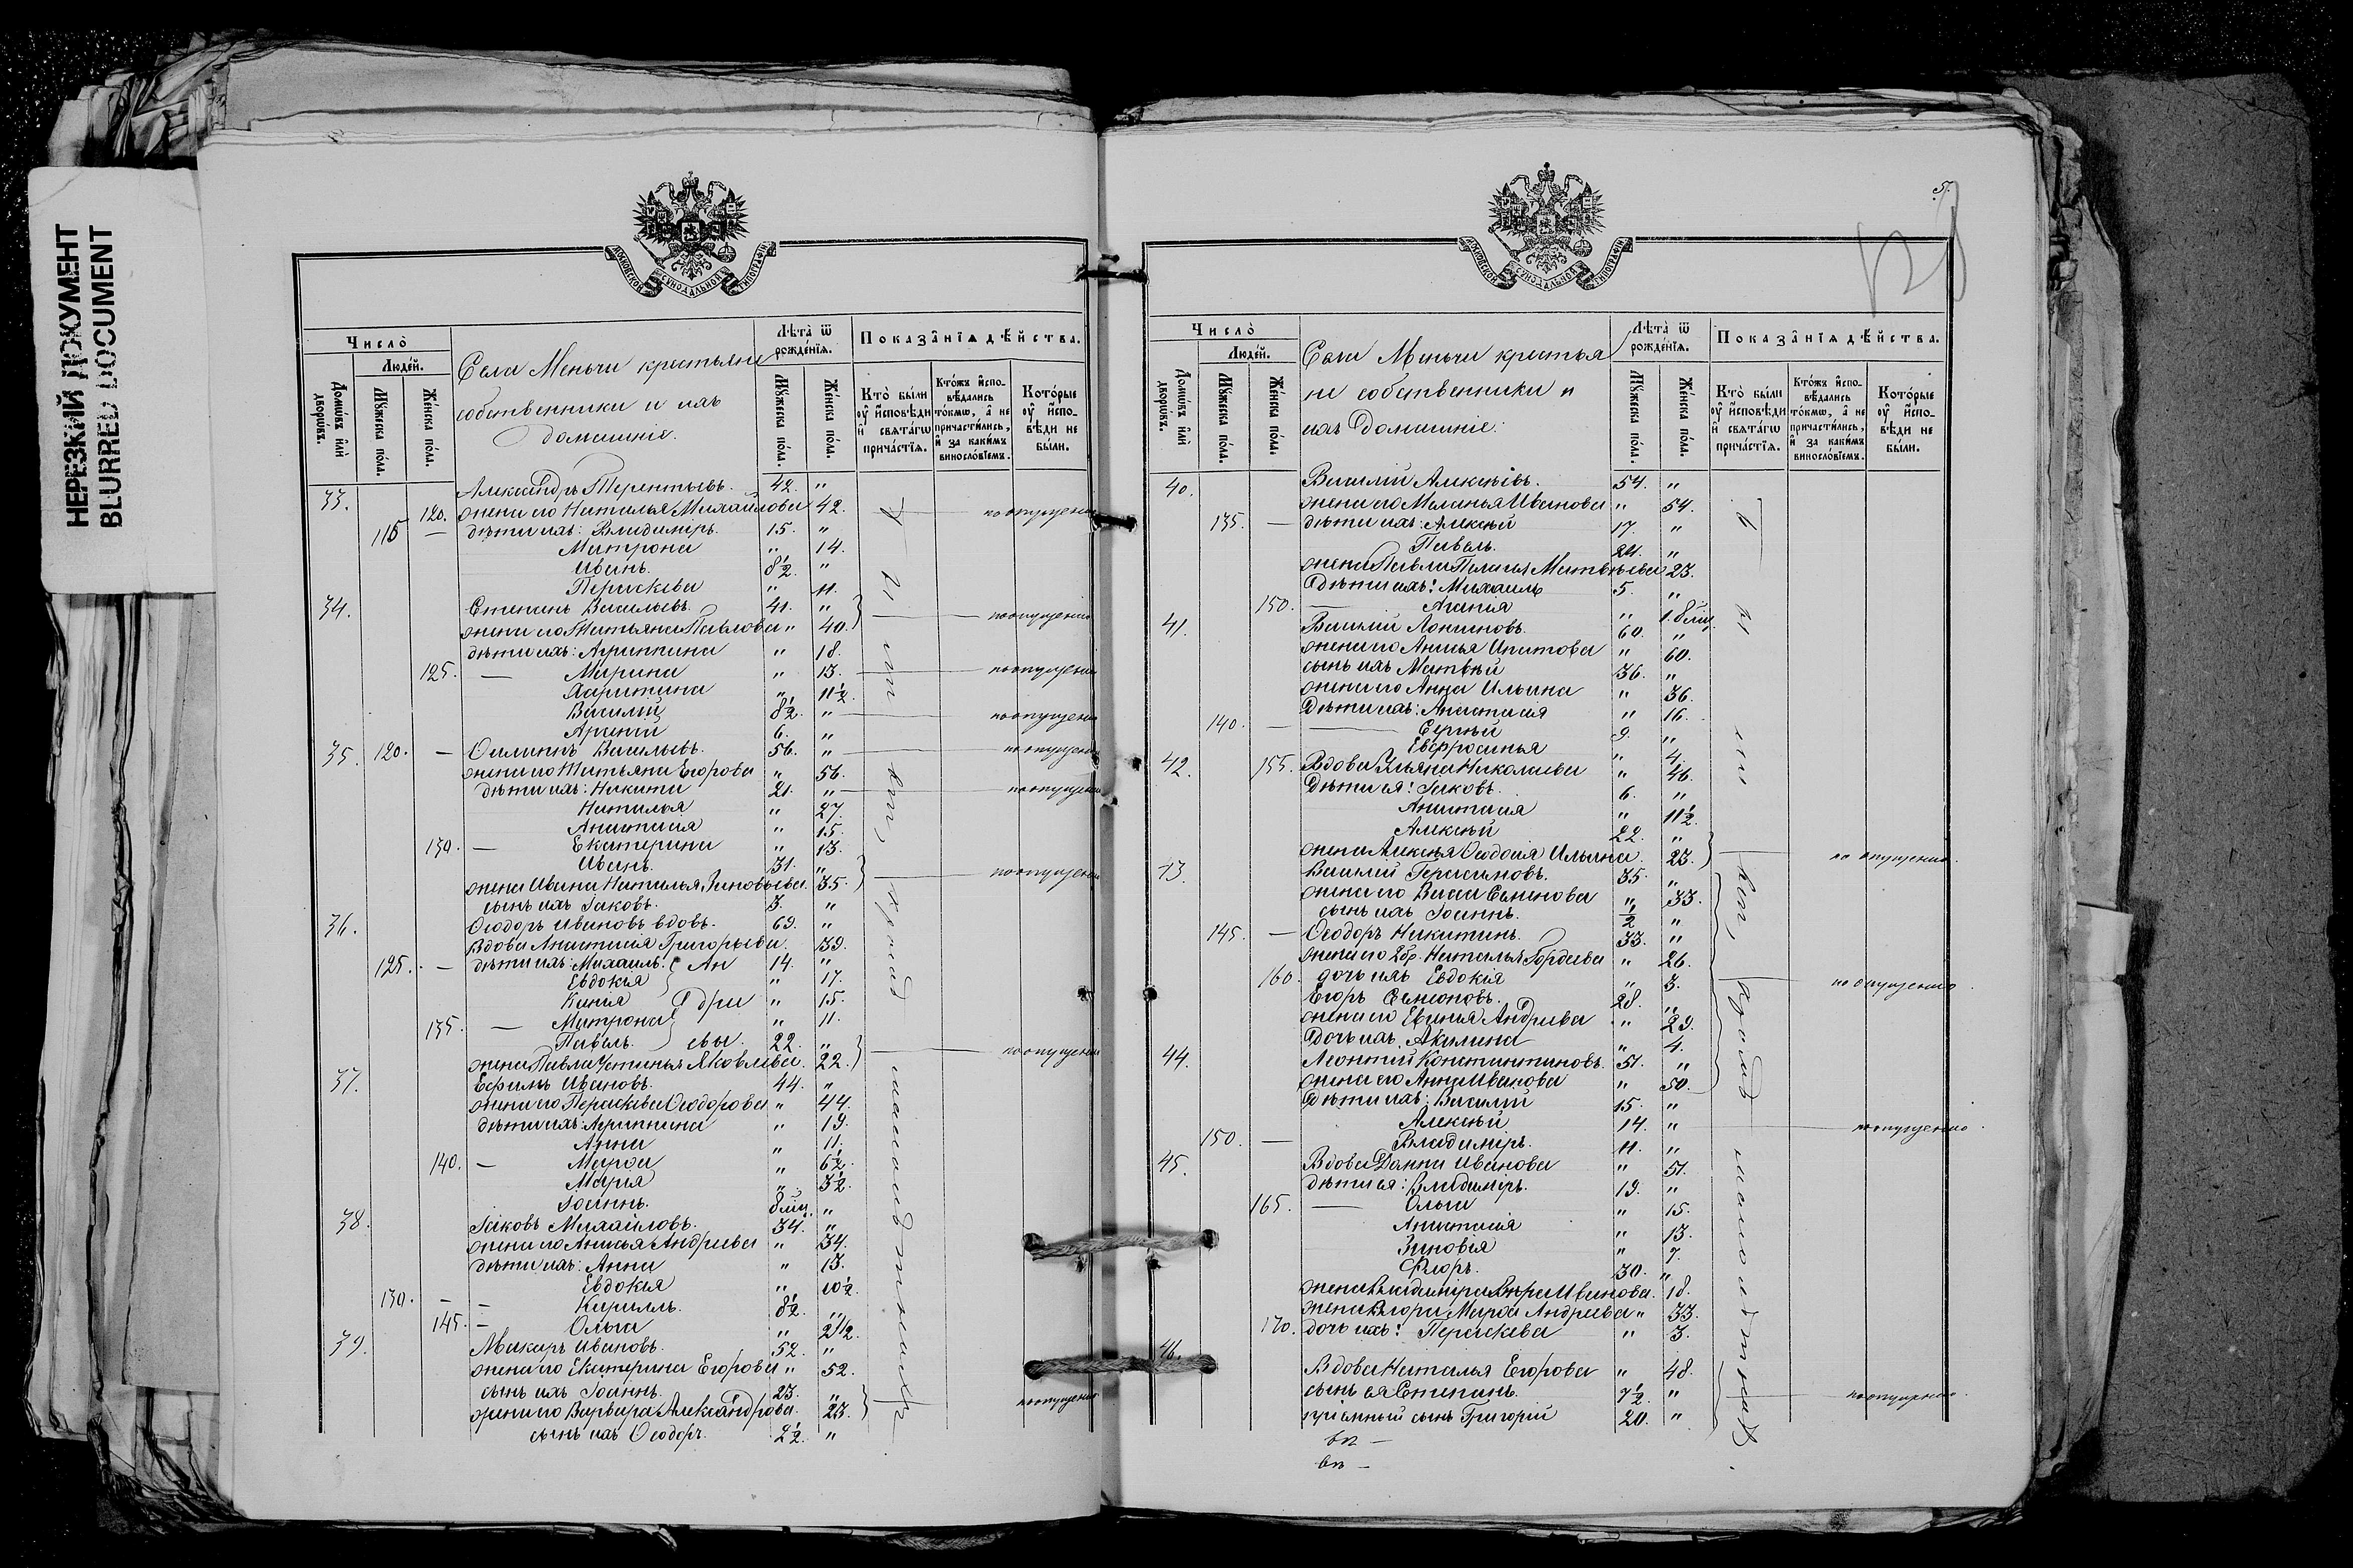 НЕРЕЗКИЙ ДОКУМЕНТ
BLURRED DOCUMENT
МОСКОВСКОЙ СѴНОДАЛЬНОЙ ТИПОГРАФІИ
Число̀
Людей.
Домѡвъ или дворѡвъ.
Мꙋжеска пола.
Женска пола.
Села Меньчи крестьяне
собственники и ихъ
домашніе.
Лѣта̀ ѿ рожденїѧ.
Мꙋжеска пола.
Женска пола.
Показанїѧ дѣйства.
Кто̀ были оу҆ исповѣди и свѧтагѡ причастїѧ.
Ктожъ исповѣдались токмѡ, а не причастились, и за какимъ винословїемъ.
Которые оу҆ исповѣди не были.
33. Александръ Терентьевъ. 42. "
120. жена его Наталья Михайлова 42. по опущенію
115 — дѣти ихъ: Владиміръ. 15. "
Матрона " 14.
Иванъ. 8½. "
Параскева " 11.
34. Степанъ Васильевъ. 41. "
жена его Татьяна Павлова " 40. по опущенію
дѣти ихъ: Агриппина " 18.
125. — Марина " 13. по опущенію
Харитина " 11½
Василій 8½. " по опущенію
Арсеній 6. "
35. 120. — Филиппъ Васильевъ. 56. " по опущенію
жена его Татьяна Егорова " 56.
дѣти ихъ: Никита 21. " по опущенію
Наталья " 27.
Анастасія " 15.
130. — Екатерина " 13.
Иванъ. 31. "
жена Ивана Наталья Зиновьева. 35. по опущенію
сынъ ихъ Іаковъ. 3. "
36. Ѳеодоръ Ивановъ вдовъ. 69. "
Вдова Анастасія Григорьева. 39.
125. — дѣти ихъ: Михаилъ. Ан 14. "
Евдокія " 17.
Ксенія дре " 15.
135. — Матрона " 11.
Павелъ. евы. 22. "
жена Павла Устинья Яковлева. 22. по опущенію
37. Ефимъ Ивановъ. 44. "
жена его Параскева Ѳеодорова " 44.
дѣти ихъ: Агриппина " 19.
Анна " 11.
140. — Марѳа " 6½.
Марія " 3½.
Іоаннъ. 8 мц. "
38. Іаковъ Михайловъ. 34. "
жена его Анисья Андреева " 34.
дѣти ихъ: Анна " 13.
Евдокія " 10½.
130. — Кириллъ. 8½. "
145. — Ольга " 2½.
39. Макаръ Ивановъ. 52. "
жена его Екатерина Егорова " 52.
сынъ ихъ Іоаннъ. 23. "
жена его Варвара Александрова. 23. по опущенію
сынъ ихъ Ѳеодоръ. 2½. "
5.
МОСКОВСКОЙ СѴНОДАЛЬНОЙ ТИПОГРАФІИ
Число̀
Людей.
Домѡвъ или дворѡвъ.
Мꙋжеска пола.
Женска пола.
Села Меньчи крестья
не собственники и
ихъ домашніе:
Лѣта̀ ѿ рожденїѧ.
Мꙋжеска пола.
Женска пола.
Показанїѧ дѣйства.
Кто̀ были оу҆ исповѣди и свѧтагѡ причастїѧ.
Ктожъ исповѣдались токмѡ, а не причастились, и за какимъ винословїемъ.
Которые оу҆ исповѣди не были.
40. Василій Алексѣевъ. 54. "
жена его Меланья Иванова " 54.
135. — дѣти ихъ: Алексѣй 17. "
Павелъ. 24. "
жена Павла Пелагея Матвѣева 23.
Дѣти ихъ: Михаилъ 5. "
150. — Агапія " 1. 8 мц.
41. Василій Логиновъ. 60. "
жена его Анисья Ипатова " 60.
сынъ ихъ Матвѣй 36. "
жена его Анна Ильина " 36.
Дѣти ихъ: Анастасія " 16.
140. — Сергѣй 9. "
Евфросинья " 4.
42. 155. Вдова Ульяна Николаева " 46.
Дѣти ея: Іаковъ. 6. "
Анастасія " 11½.
Алексѣй 22. "
жена Алексѣя Ѳеодосія Ильина. 23. по опущенію.
43. Василій Герасимовъ. 35. "
жена его Васса Семенова " 33.
сынъ ихъ Іоаннъ. ½ "
145. — Ѳеодоръ Никитинъ. 33. "
жена его 2 бр. Наталья Гордѣева " 26.
160. дочь ихъ Евдокія " 3. по опущенію.
Егоръ Семеновъ. 28. "
жена его Евгенія Андреева " 29.
Дочь ихъ Акилина " 4.
44. Леонтій Константиновъ. 51. "
жена его Анна Иванова " 50.
Дѣти ихъ: Василій 15. "
Алексѣй 14. " по опущенію.
150. — Владиміръ. 11. "
45. Вдова Дарья Иванова " 51.
дѣти ея: Владиміръ. 19. "
165. — Ольга " 15.
Анастасія " 13.
Зиновія " 7.
Флоръ. 30. "
жена Владиміра Вѣра Иванова. 18.
жена Флора Марѳа Андреева " 33.
170. дочь ихъ: Параскева " 3.
46. Вдова Наталья Егорова " 48.
сынъ ея Степанъ. 7½. " по опущенію.
пріемный сынъ Григорій 20. "